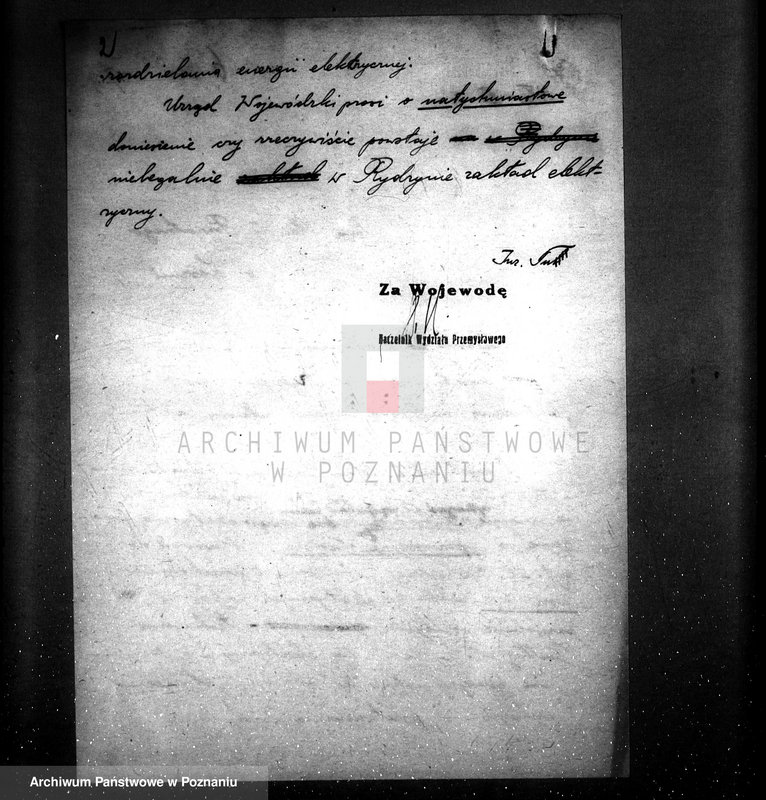 rozdzielania energii elektrycznej.
Urząd Wojewódzki prosi o natychmiastowe
doniesienie czy rzeczywiście powstaje w Rydzynie
nielegalnie zakład w Rydzynie zakład elekt-
ryczny.
Za Wojewodę
Naczelnik Wydziału Przemysłowego
ARCHIWUM PAŃSTWOWE
W POZNANIU
Archiwum Państwowe w Poznaniu